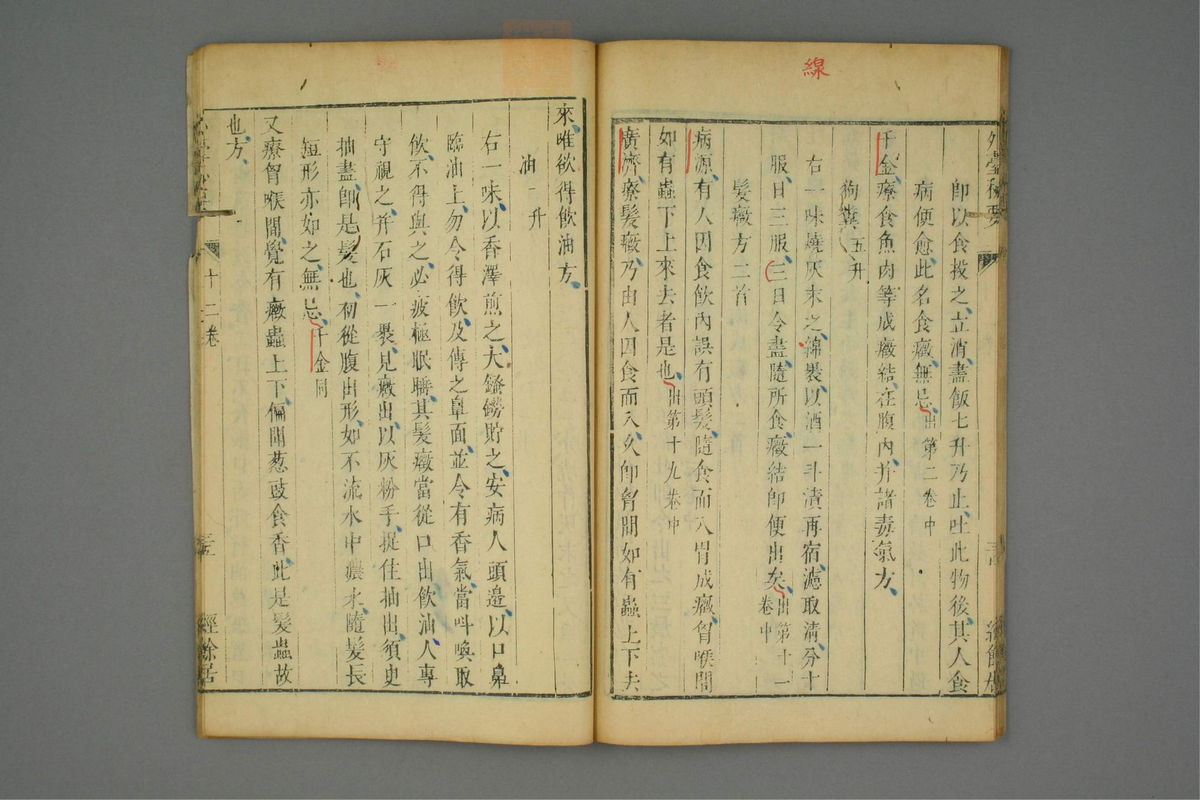 線
外臺秘要
即以食投之、立消、盡飯七升乃止、吐此物後、其人食
病便愈、此名食癥、無忌、出第二卷中
千金、療食魚肉等成癥結在腹內、并諸毒氣方、
狗糞、五升
右一味燒灰末之、綿褁以酒一斗漬再宿、濾取清、分十
服、日三服、三日令盡、隨所食癥結即便出矣、出第十一卷中
髮癥方二首
病源、有人因食飲內誤有頭髮、隨食而入胃成癥、胷喉間
如有蟲下上來去者是也、出第十九卷中
廣濟、療髮癥、乃由人因食而入、久即胷間如有蟲上下去
來、唯欲得飲油方、
油一升
右一味、以香澤煎之、大䥫鐒貯之、安病人頭邊、以口鼻
臨油上、勿令得飲、及傅之鼻面、並令有香氣、當叫喚取
飲、不得與之、必疲極眠睡、其髮癥當從口出飲油、人專
守視之、并石灰一褁、見癥出、以灰粉手、捉住抽出、須臾
抽盡、即是髮也、初從腹出形、如不流水中濃水、隨髮長
短形亦如之、無忌、千金同
又療胷喉間、覺有癥蟲上下、偏聞葱豉食香、此是髮蟲故
也、方、
十二卷
經餘居